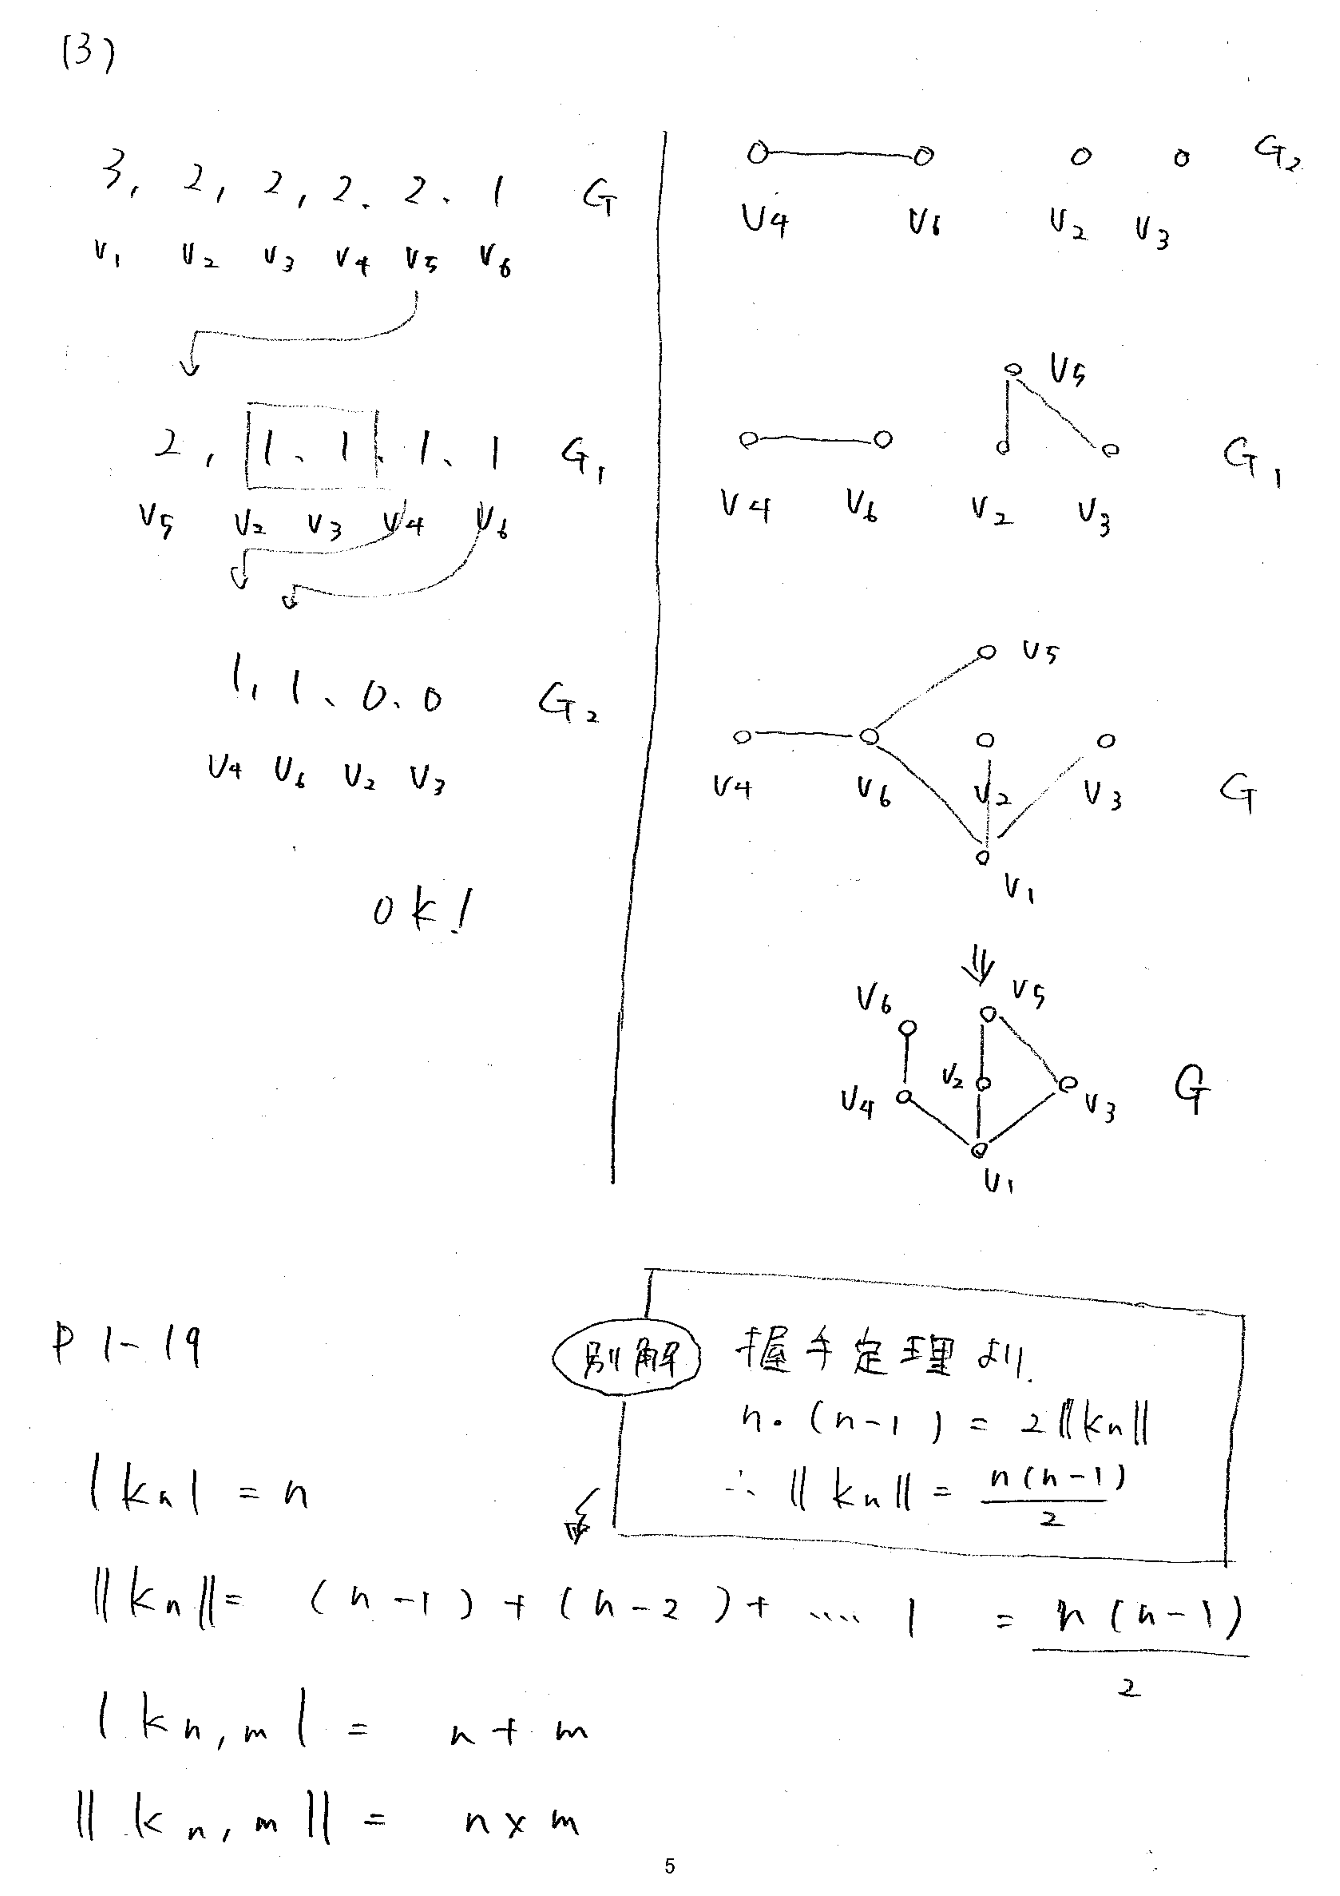 (3)
3, 2, 2, 2. 2. 1 G
V1 V2 V3 V4 V5 V6
2, 1、1、1、1 G1
V5 V2 V3 V4 V6
1, 1、0、0 G2
V4 V6 V2 V3
ok!
G2
V4 V6 V2 V3
V5
G1
V4 V6 V2 V3
V5
V4 V6 V2 V3 G
V1
V6 V5
V4 V2 V3 G
V1
P 1-19
別解 握手定理より.
n・(n-1) = 2||kn||
∴ ||kn|| = n(n-1)/2
|kn| = n
||kn|| = (n-1)+(n-2)+ ‥‥ 1 = n(n-1)/2
|kn,m| = n+m
||kn,m|| = n×m
5